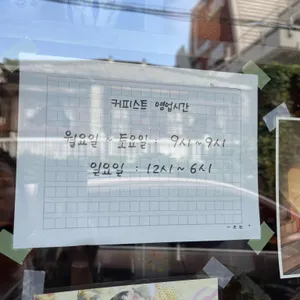 커피스트 영업시간
월요일 ~ 토요일 : 9시 ~ 9시
일요일 : 12시 ~ 6시